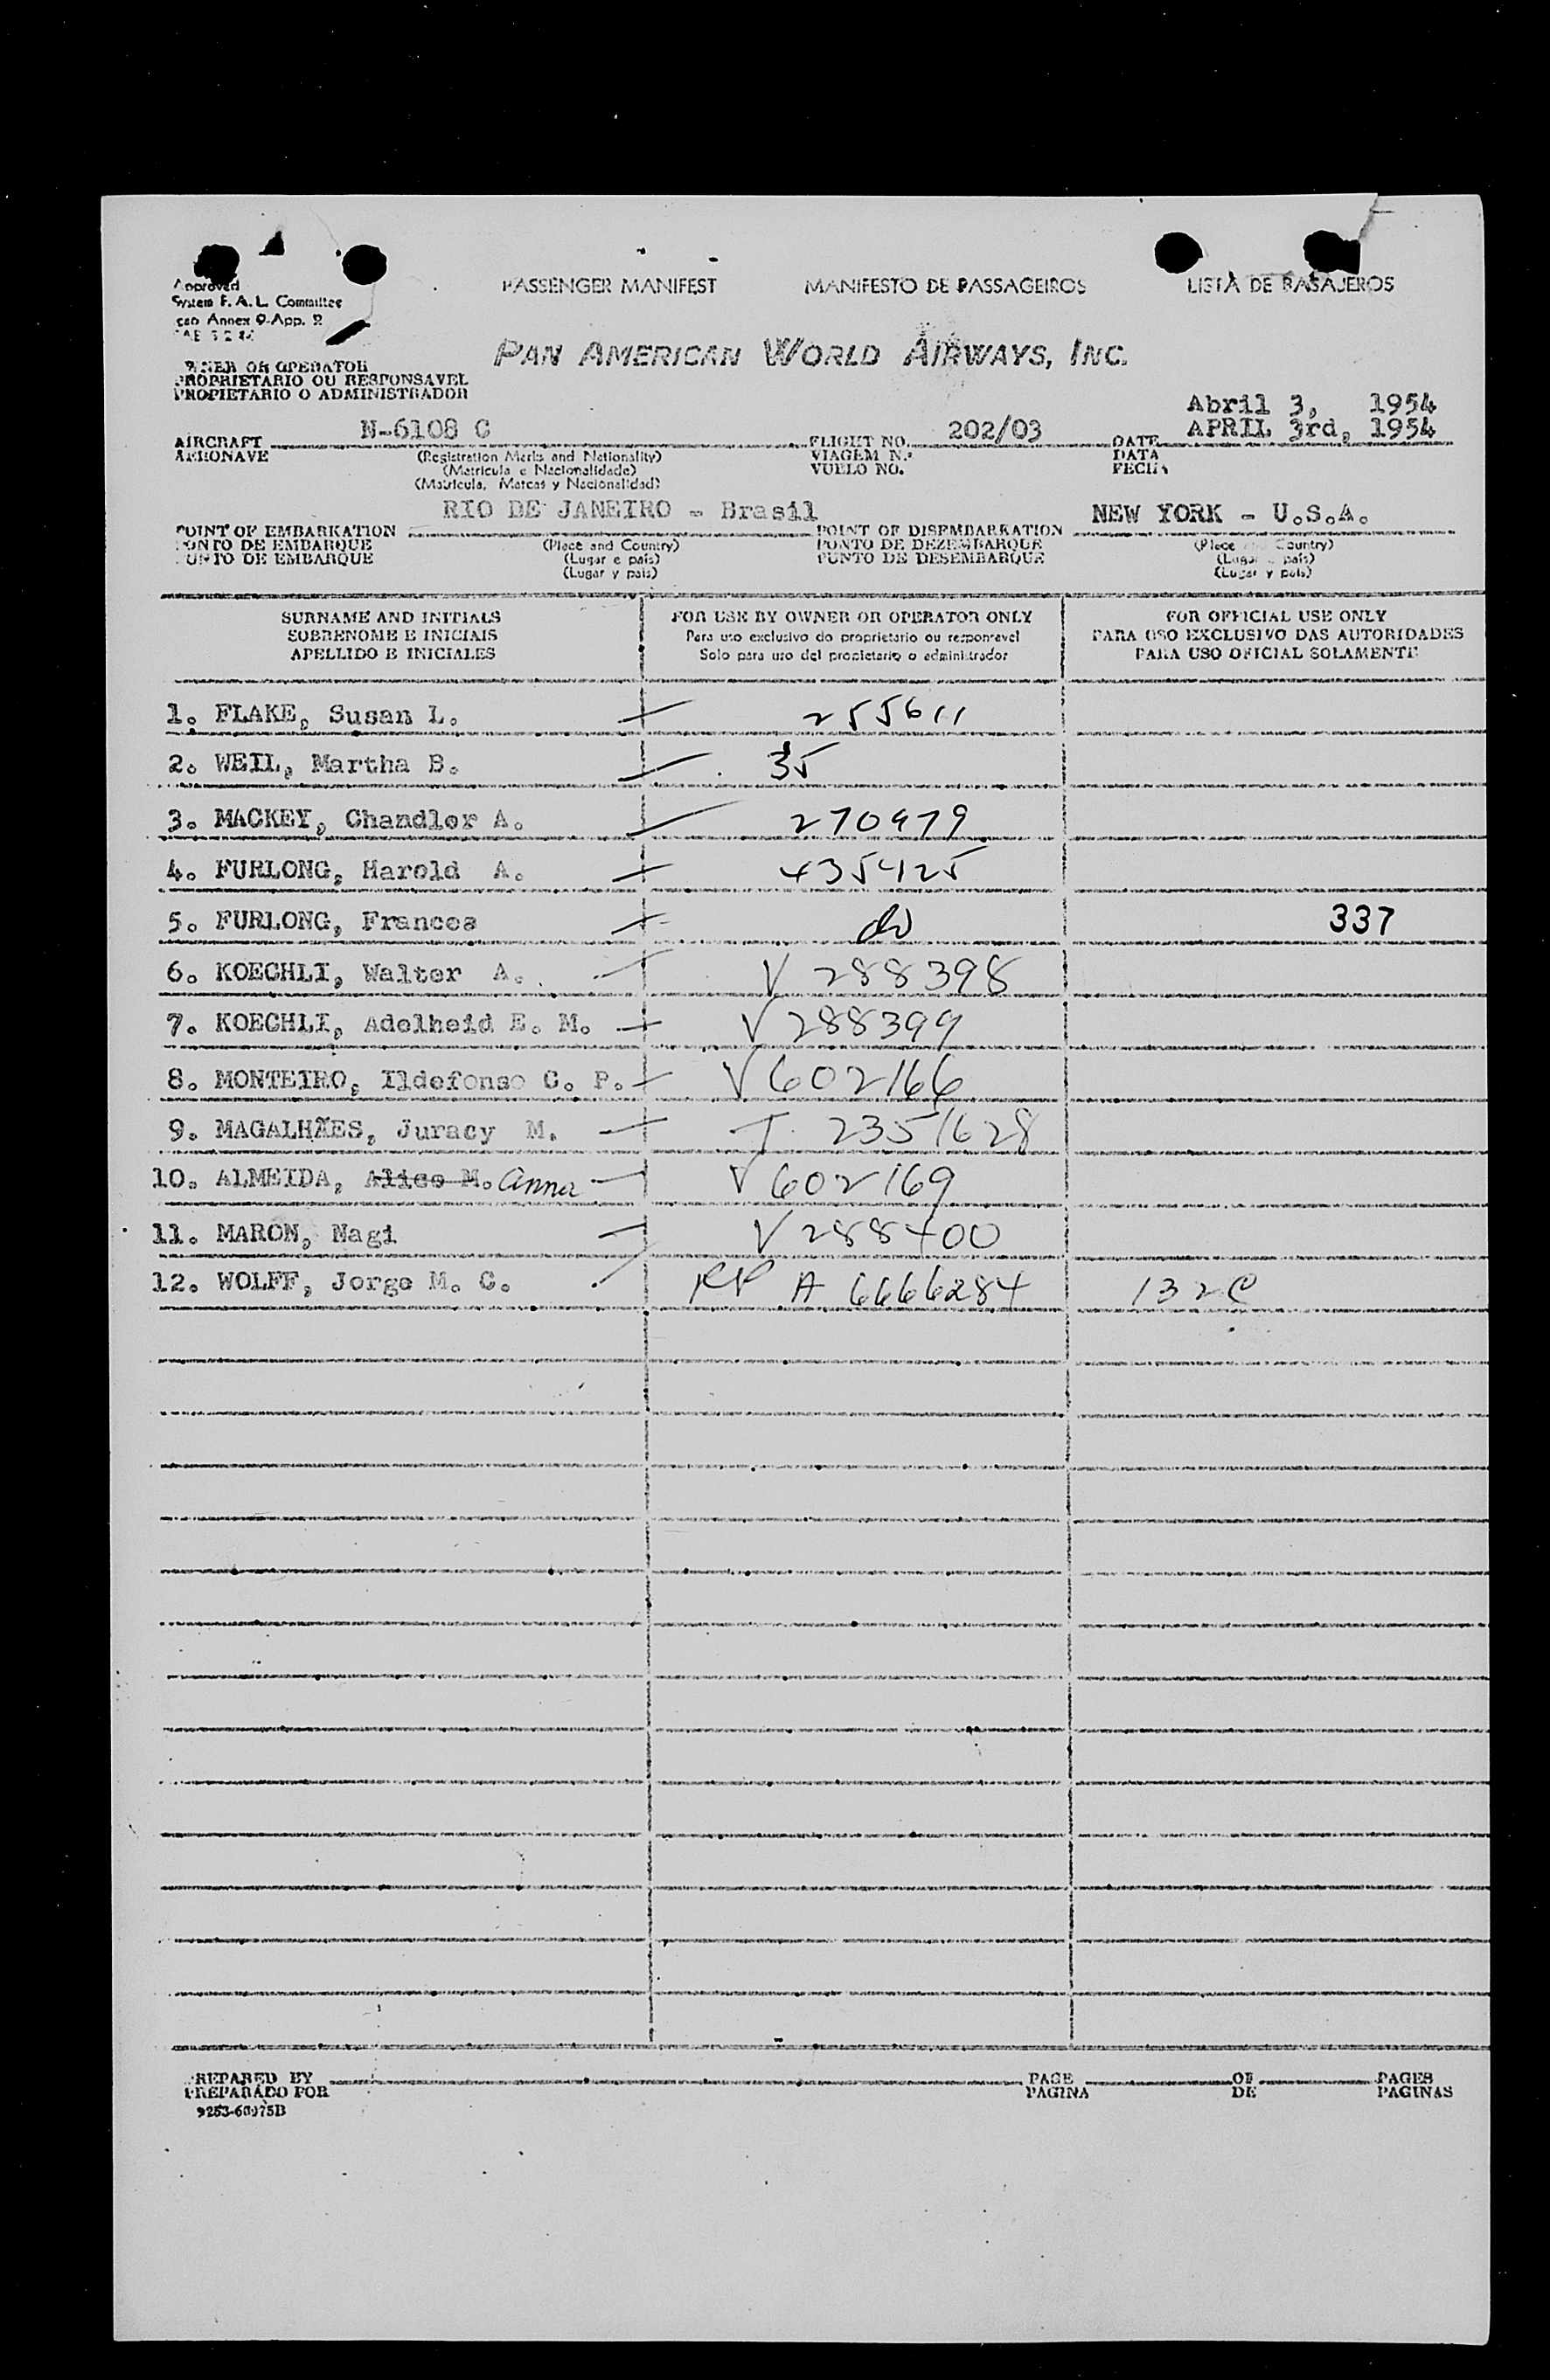 Approved
System F. A. L. Committee
Annex 9-App. 2
PASSENGER MANIFEST MANIFESTO DE PASSAGEIROS LISTA DE PASAJEROS
PAN AMERICAN WORLD AIRWAYS, INC.
OWNER OR OPERATOR
PROPRIETARIO OU RESPONSAVEL
PROPIETARIO O ADMINISTRADOR
Abril 3, 1954
AIRCRAFT N-6108 C FLIGHT NO. 202/03 DATE APRIL 3rd, 1954
AERONAVE (Registration Marks and Nationality) VIAGEM N.º DATA
(Matricula e Nacionalidade) VUELO NO. FECHA
(Matricula, Marcas y Nacionalidad)
POINT OF EMBARKATION RIO DE JANEIRO - Brasil POINT OF DISEMBARKATION NEW YORK - U.S.A.
PONTO DE EMBARQUE (Place and Country) PONTO DE DEZEMBARQUE (Place and Country)
PUNTO DE EMBARQUE (Lugar e pais) PUNTO DE DESEMBARQUE (Lugar e pais)
(Lugar y pais) (Lugar y pais)
SURNAME AND INITIALS FOR USE BY OWNER OR OPERATOR ONLY FOR OFFICIAL USE ONLY
SOBRENOME E INICIAIS Para uso exclusivo do proprietario ou responsavel PARA USO EXCLUSIVO DAS AUTORIDADES
APELLIDO E INICIALES Solo para uso del propietario o administrador PARA USO OFICIAL SOLAMENTE
1. FLAKE, Susan L. 255611
2. WEIL, Martha B. 35
3. MACKEY, Chandler A. 270979
4. FURLONG, Harold A. 435425
5. FURLONG, Frances do 337
6. KOECHLI, Walter A. V 288398
7. KOECHLI, Adelheid E. M. V 288399
8. MONTEIRO, Ildefonso C. P. V 602166
9. MAGALHÃES, Juracy M. T. 2351628
10. ALMEIDA, Alice M. Anna V 602169
11. MARON, Nagi V 288400
12. WOLFF, Jorge M. C. RP A 6666284 132C
PREPARED BY PAGE OF PAGES
PREPARADO POR PAGINA DE PAGINAS
9253-60975B